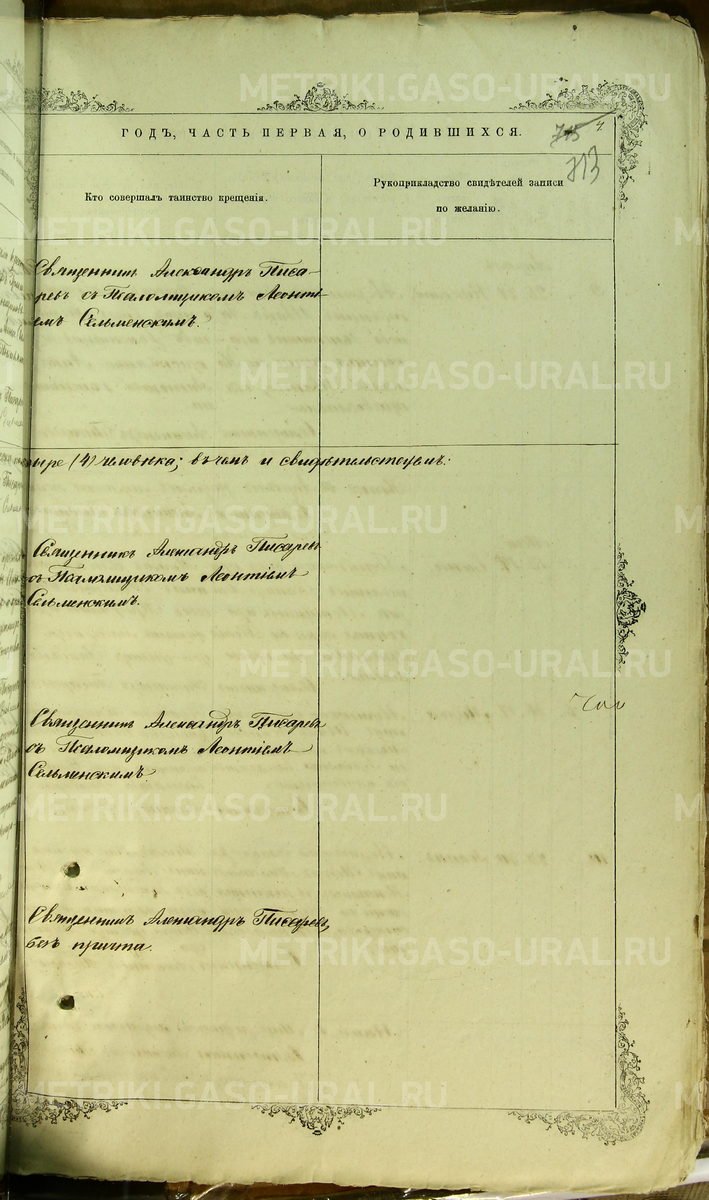 METRIKI.GASO-URAL.RU
ГОДЪ, ЧАСТЬ ПЕРВАЯ, О РОДИВШИХСЯ.
713
Кто совершалъ таинство крещенія.
Рукоприкладство свидѣтелей записи
по желанію.
Священникъ Александръ Писа-
ревъ съ Псаломщикомъ Леонті-
емъ Сельменскимъ.
тыре (4) человѣка; въ чемъ и свидѣтельствуемъ:
Священникъ Александръ Писаревъ
съ Псаломщикомъ Леонтіемъ
Сельменскимъ.
Священникъ Александръ Писаревъ
съ Псаломщикомъ Леонтіемъ
Сельменскимъ.
Священникъ Александръ Писаревъ,
безъ причта.